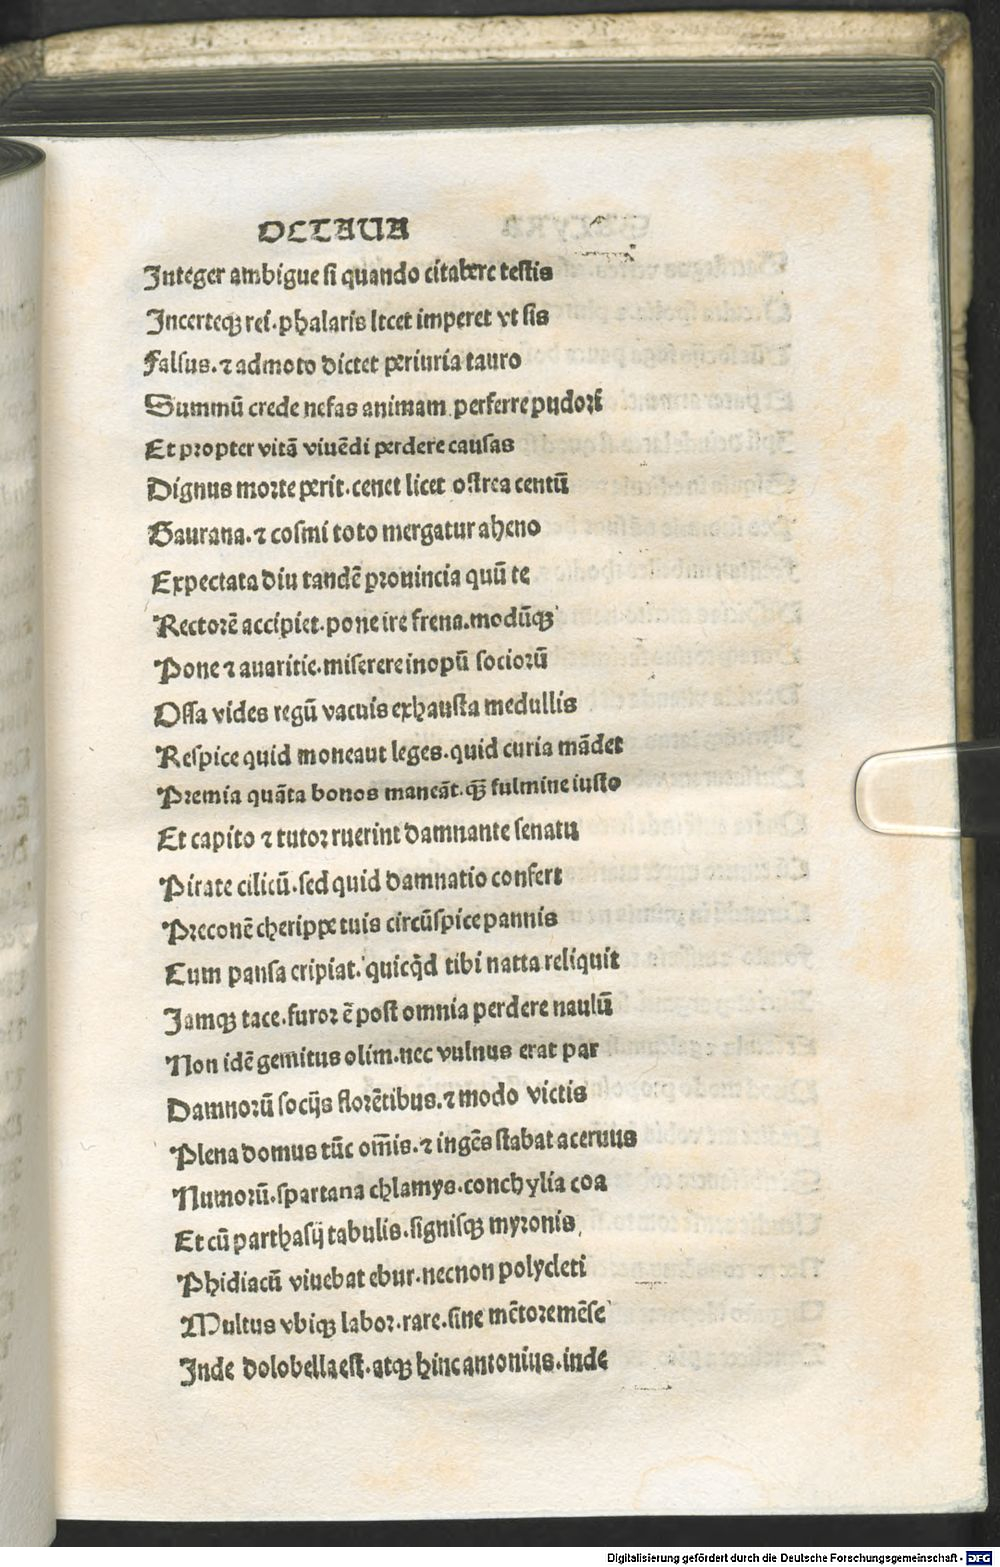 OCTAUA
Integer ambigue si quando citabere testis
Incerteqꝫ rei. phalaris licet imperet vt sis
Falsus. ⁊ admoto dictet periuria tauro
Summū crede nefas animam perferre pudori
Et propter vitā viuēdi perdere causas
Dignus morte perit. cenet licet ostrea centū
Gaurana. ⁊ cosmi toto mergatur aheno
Expectata diu tandē prouincia quū te
Rectorē accipiet. pone ire frena. modūqꝫ
Pone ⁊ auaritie. miserere inopū sociorū
Ossa vides regū vacuis exhausta medullis
Respice quid moneaut leges. quid curia mādet
Premia quāta bonos maneāt. qꝫ̄ fulmine iusto
Et capito ⁊ tutor ruerint damnante senatu
Pirate cilicū. sed quid damnatio confert
Preconē cherippe tuis circūspice pannis
Cum pansa eripiat. quicqd̄ tibi natta reliquit
Jamqꝫ tace. furor ē post omnia perdere naulū
Non idē gemitus olim. nec vulnus erat par
Damnorū socijs florētibus. ⁊ modo victis
Plena domus tūc om̄is. ⁊ ingēs stabat aceruus
Numorū. spartana chlamys. conchylia coa
Et cū parthasij tabulis. signisqꝫ myronis
Phidiacū viuebat ebur. necnon polycleti
Multus vbiqꝫ labor. rare. sine mētore mēse
Inde dolobella est. atqꝫ hinc antonius. inde
Digitalisierung gefördert durch die Deutsche Forschungsgemeinschaft - DFG